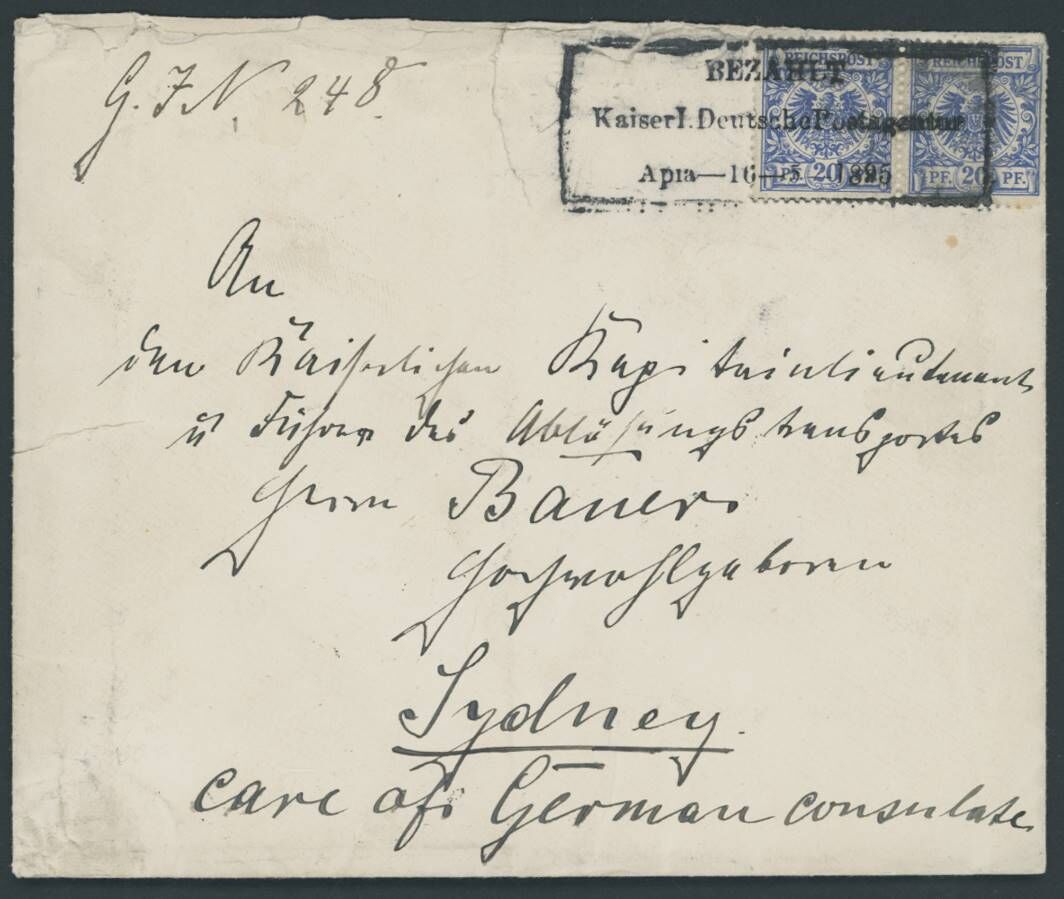 G. J. N. 248.
BEZAHLT
Kaiserl. Deutsche Postagentur
Apia—16—5 1895
REICHSPOST REICHSPOST
PF. 20 PF. 20 PF.
An
den Kaiserlichen Kapitainlieutenant
u Führer des Ablösungstransportes
Herrn Bauer
Hochwohlgeboren
Sydney.
care of German consulate